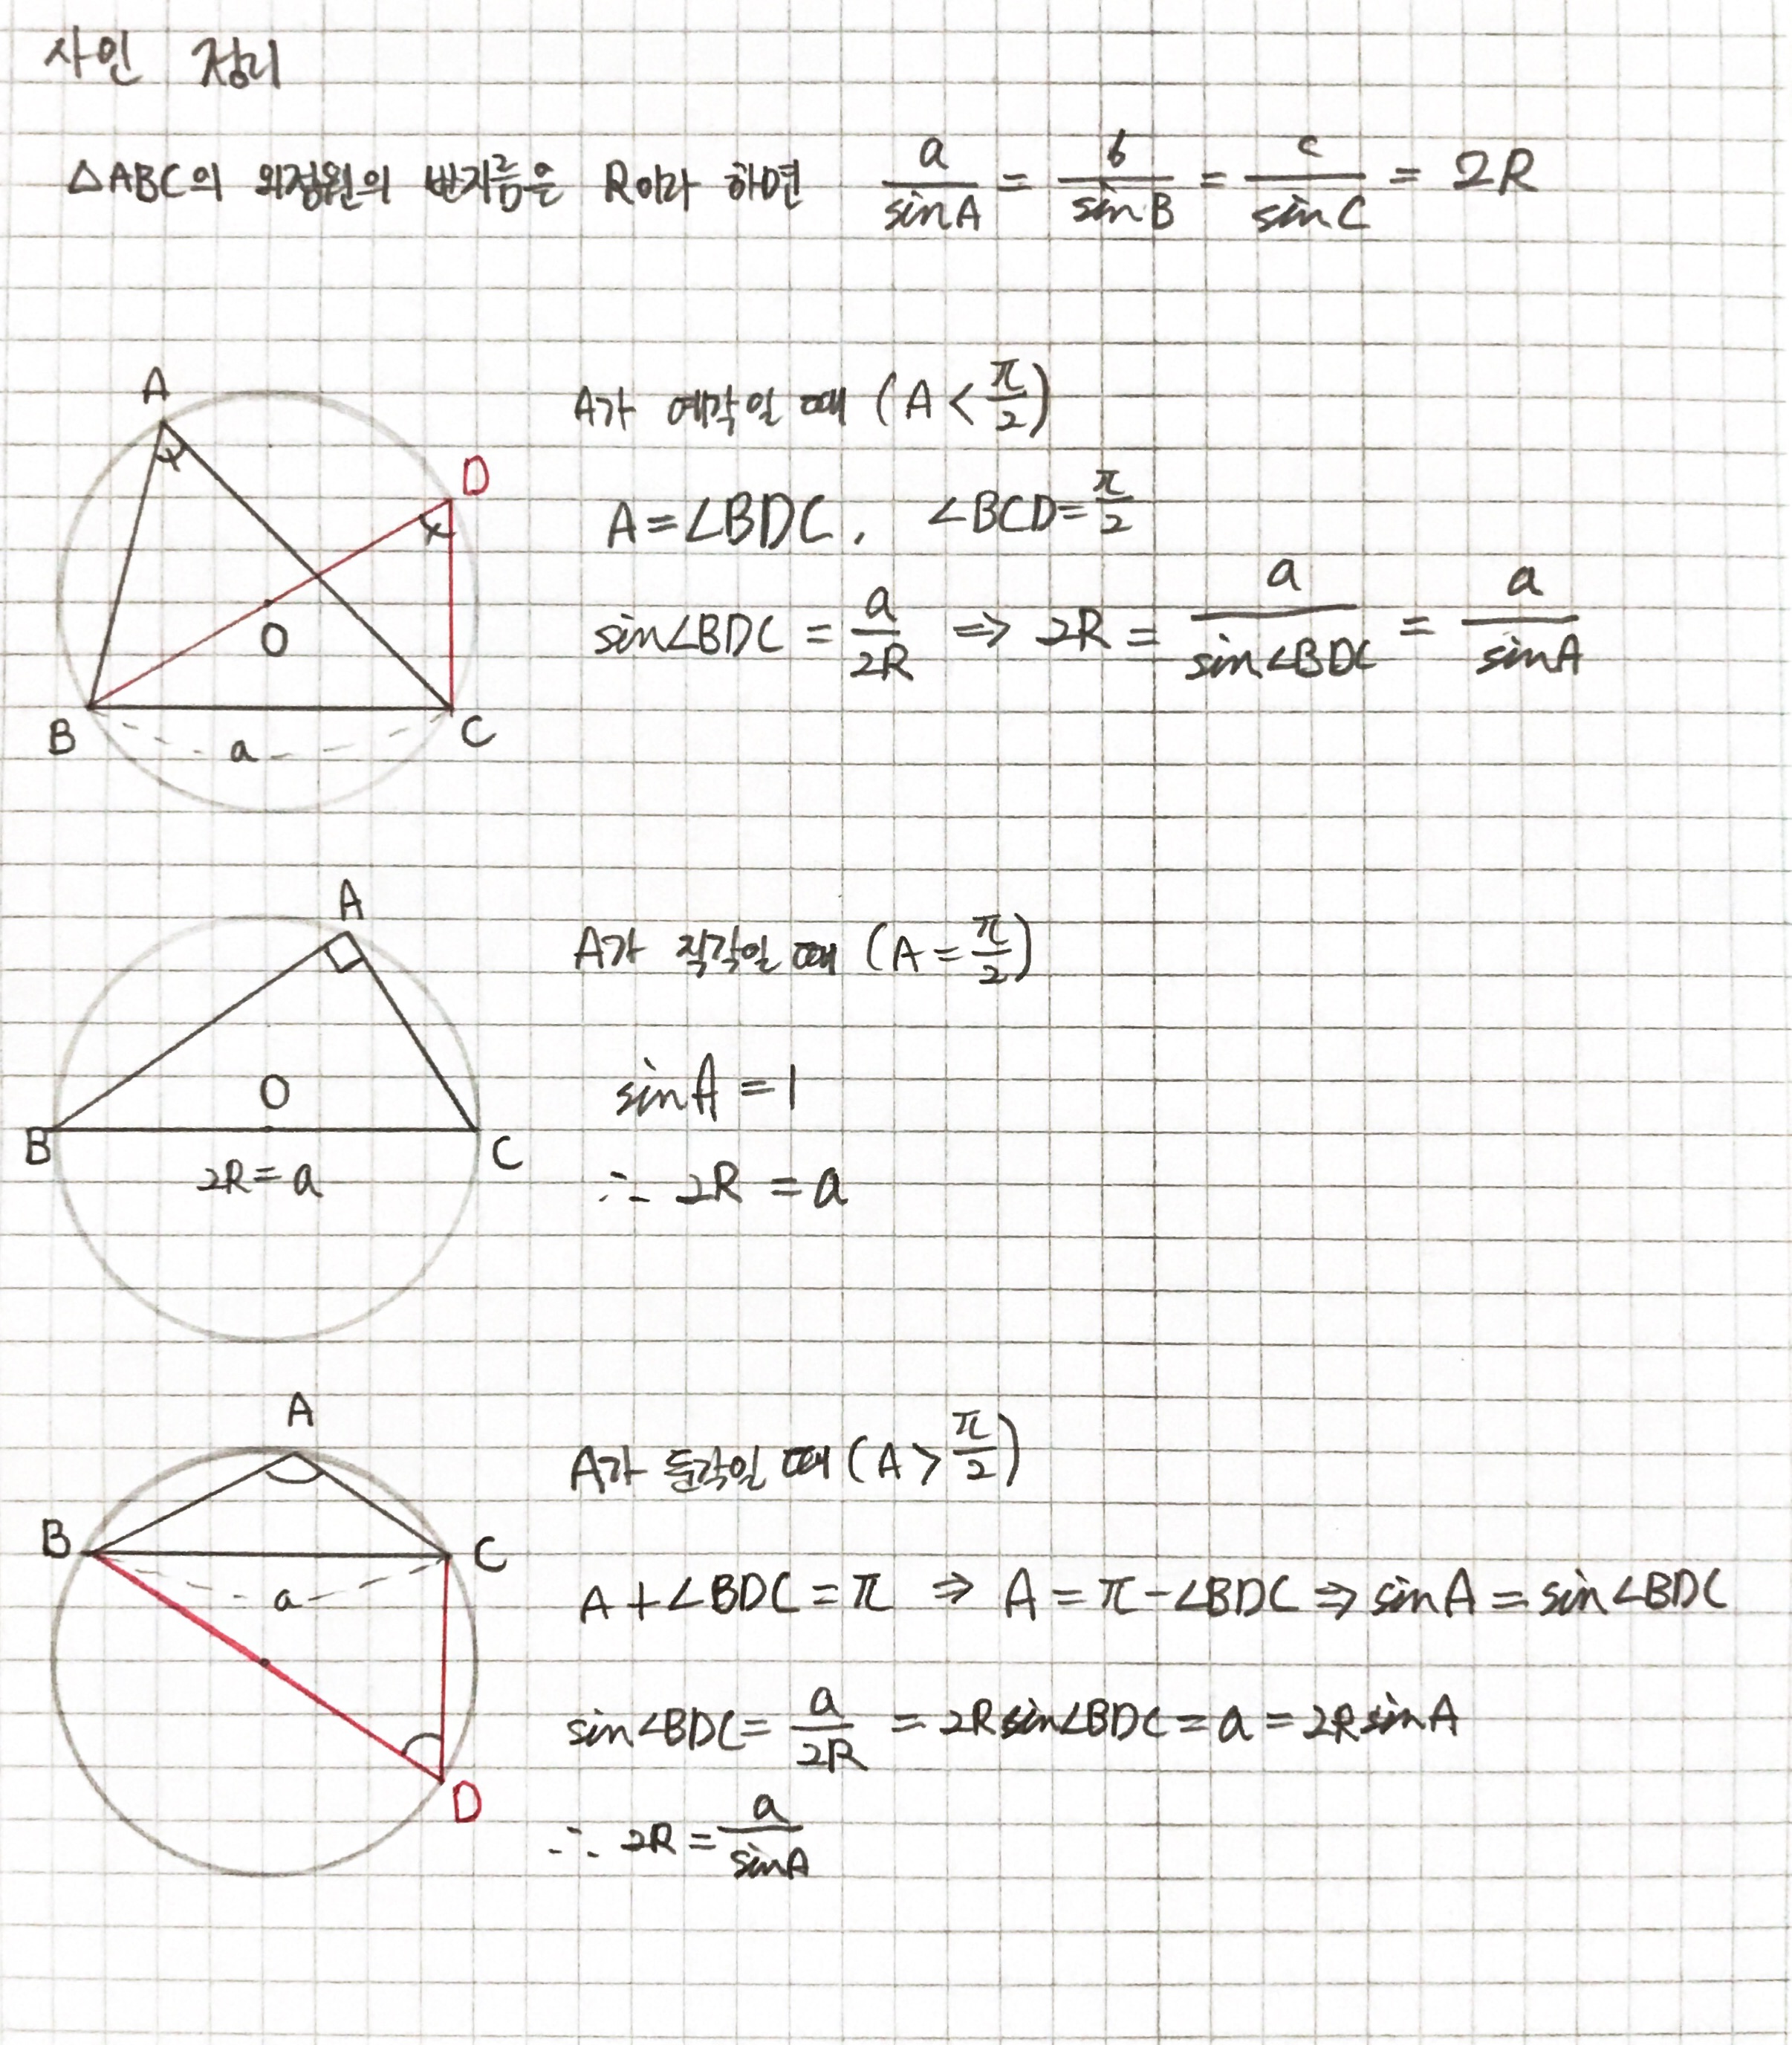 사인 정리
△ABC의 외접원의 반지름은 R이라 하면 a/sinA = b/sinB = c/sinC = 2R
A
D
O
B
a
C
A가 예각일 때 (A < π/2)
A = ∠BDC, ∠BCD = π/2
sin∠BDC = a/2R ⇒ 2R = a/sin∠BDC = a/sinA
A
O
B
C
2R = a
A가 직각일 때 (A = π/2)
sinA = 1
∴ 2R = a
A
B
C
a
D
A가 둔각일 때 (A > π/2)
A + ∠BDC = π ⇒ A = π - ∠BDC ⇒ sinA = sin∠BDC
sin∠BDC = a/2R = 2R sin∠BDC = a = 2R sinA
∴ 2R = a/sinA